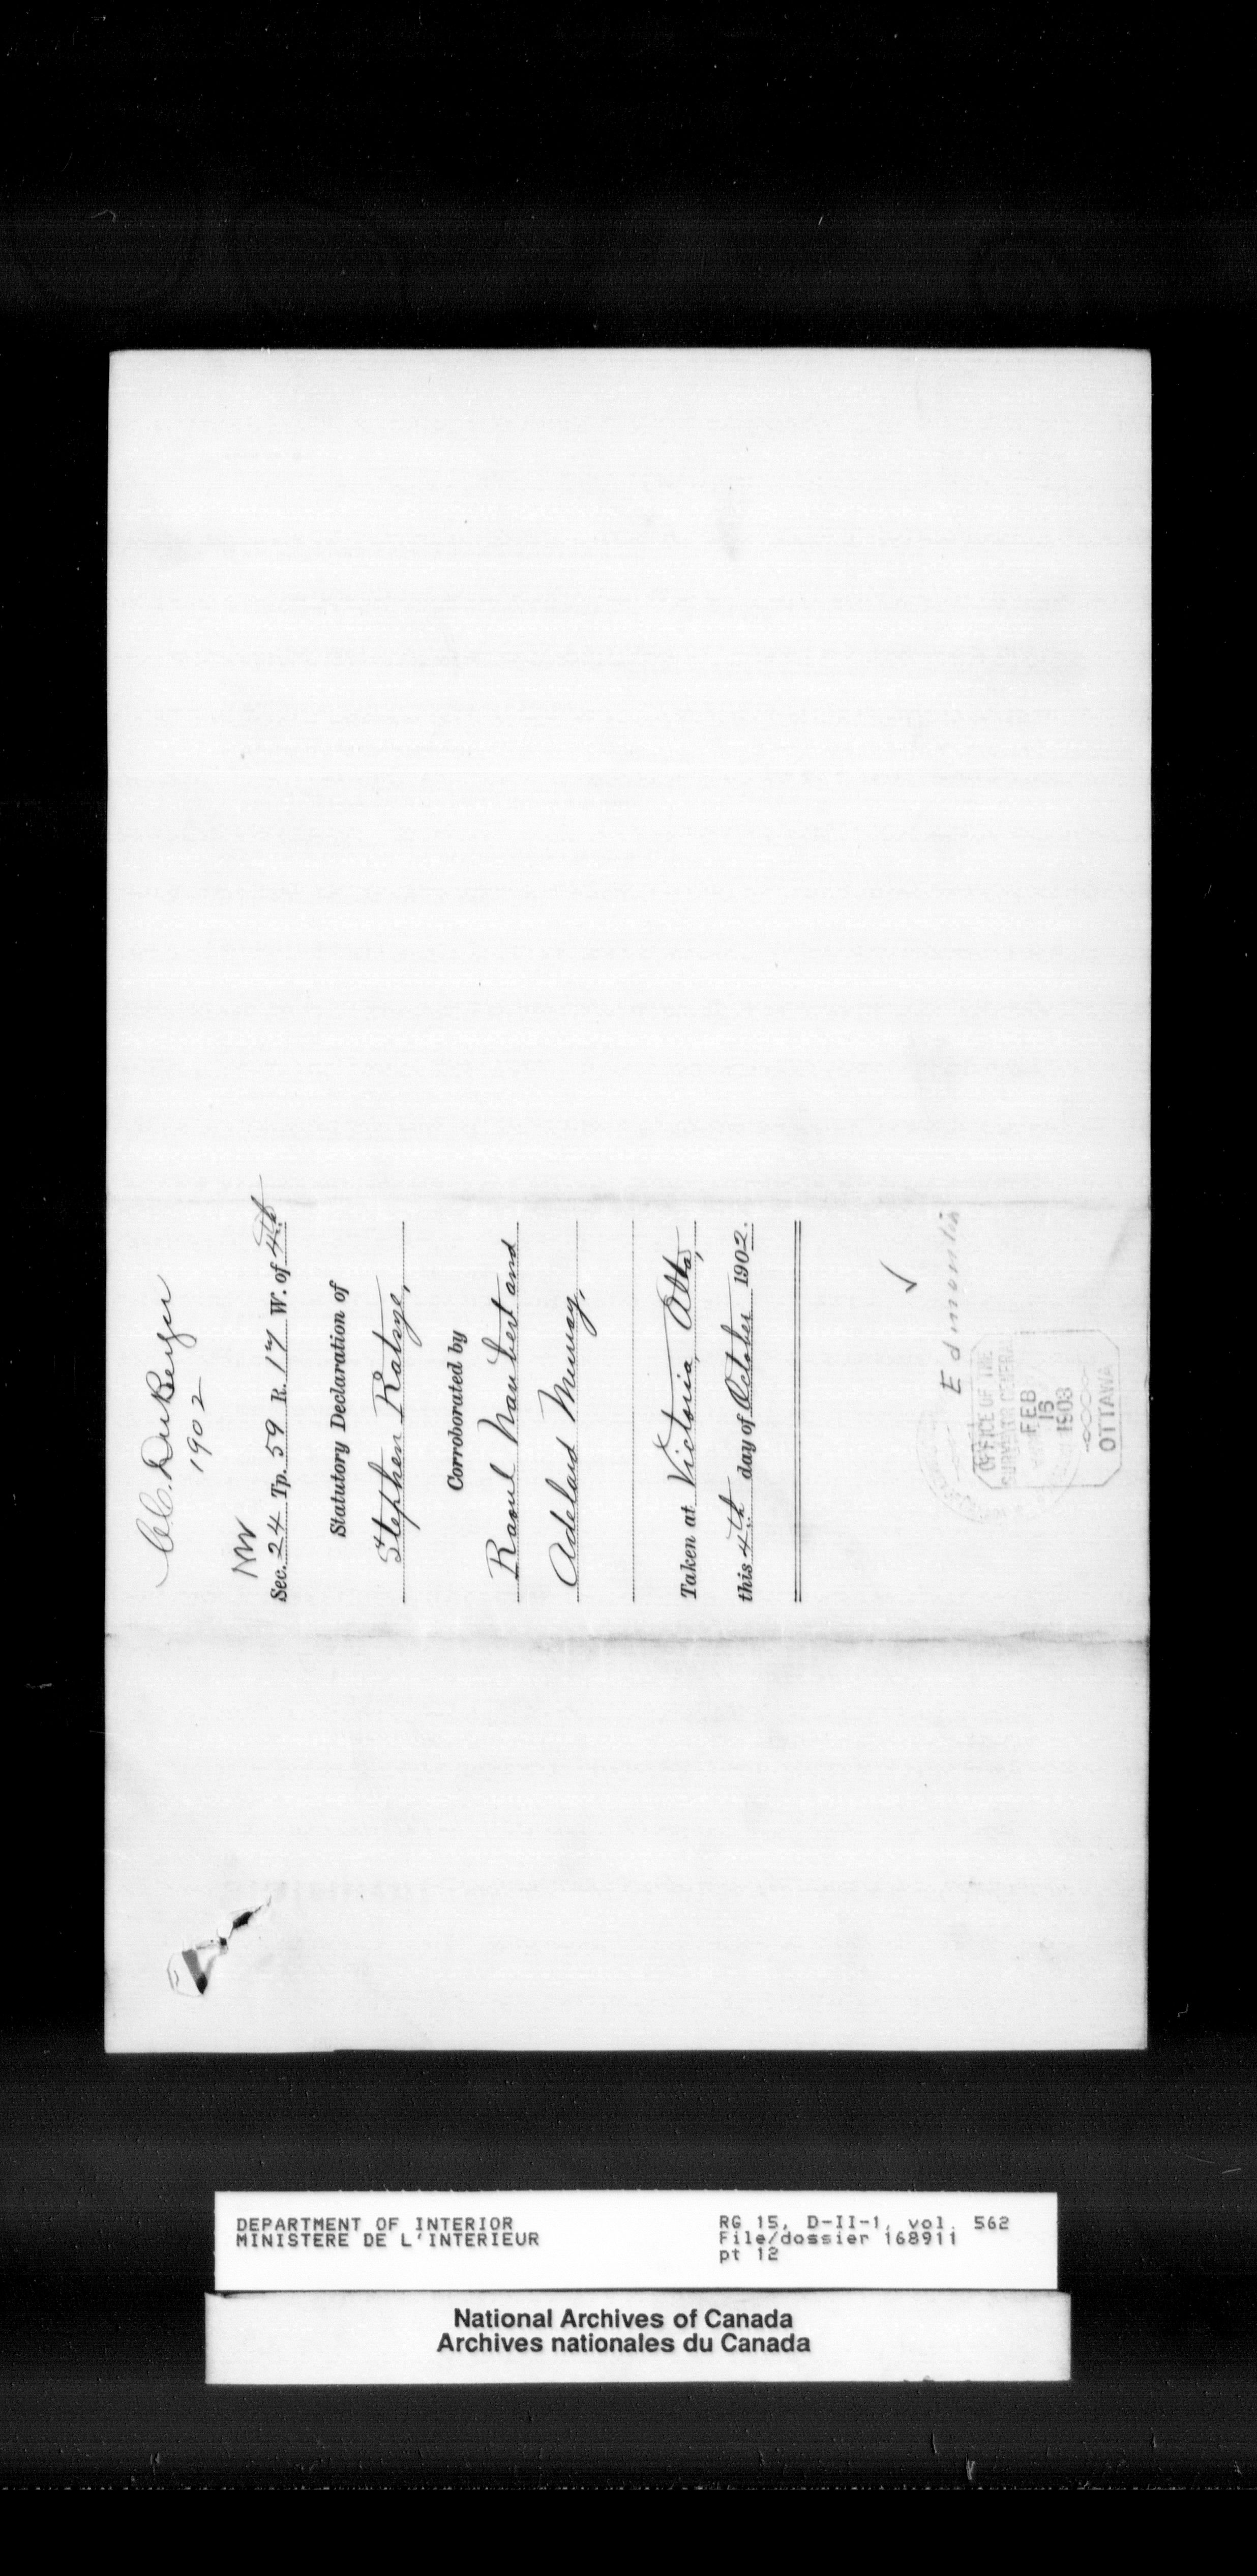 C.C. DuBerger
1902
NW
Sec. 24 Tp. 59 R. 17 W. of 4th
Statutory Declaration of
Stephen Ratsye,
Corroborated by
Raoul Naubert and
Adelard Munay,
Taken at Victoria, Alta,
this 4th day of October 1902.
✓
OFFICE OF THE
SURVEYOR GENERAL
FEB
16
1903
OTTAWA
DEPARTMENT OF INTERIOR
MINISTERE DE L'INTERIEUR
RG 15, D-II-1, vol. 562
File/dossier 168911
pt 12
National Archives of Canada
Archives nationales du Canada